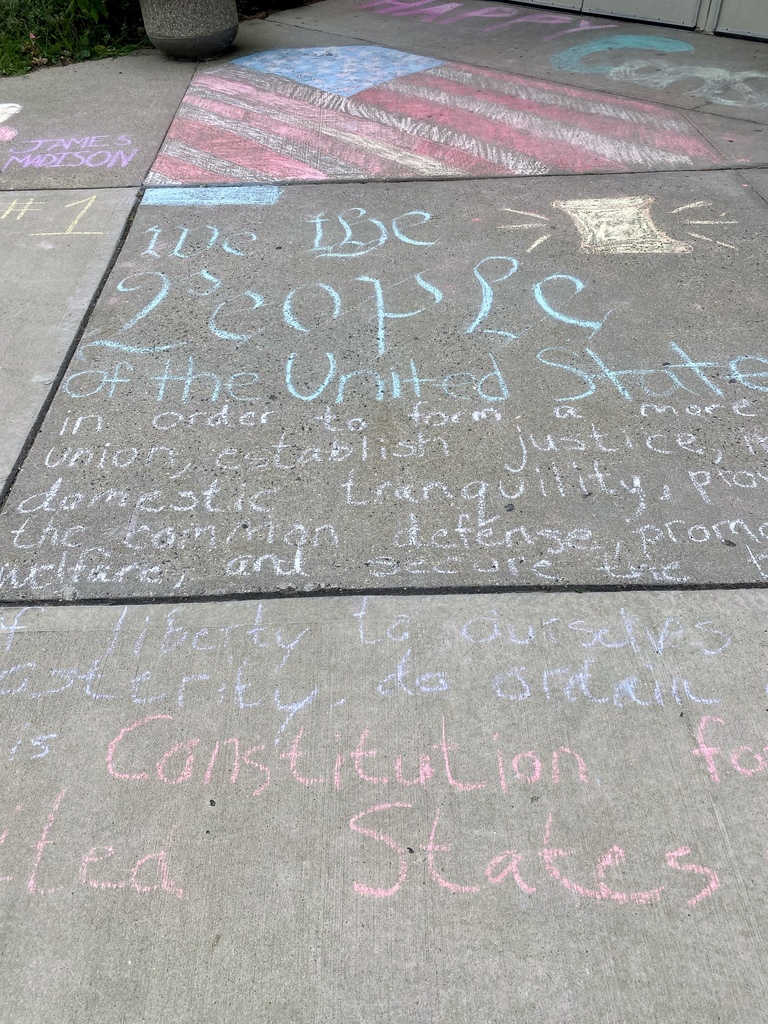 HAPPY
JAMES
MADISON
#1
We the
People
of the United State
in order to form a more
union, establish justice,
domestic tranquility, prov
the common defense, promo
welfare, and secure the
f liberty to ourselves
osterity, do ordain
is Constitution fo
ited States